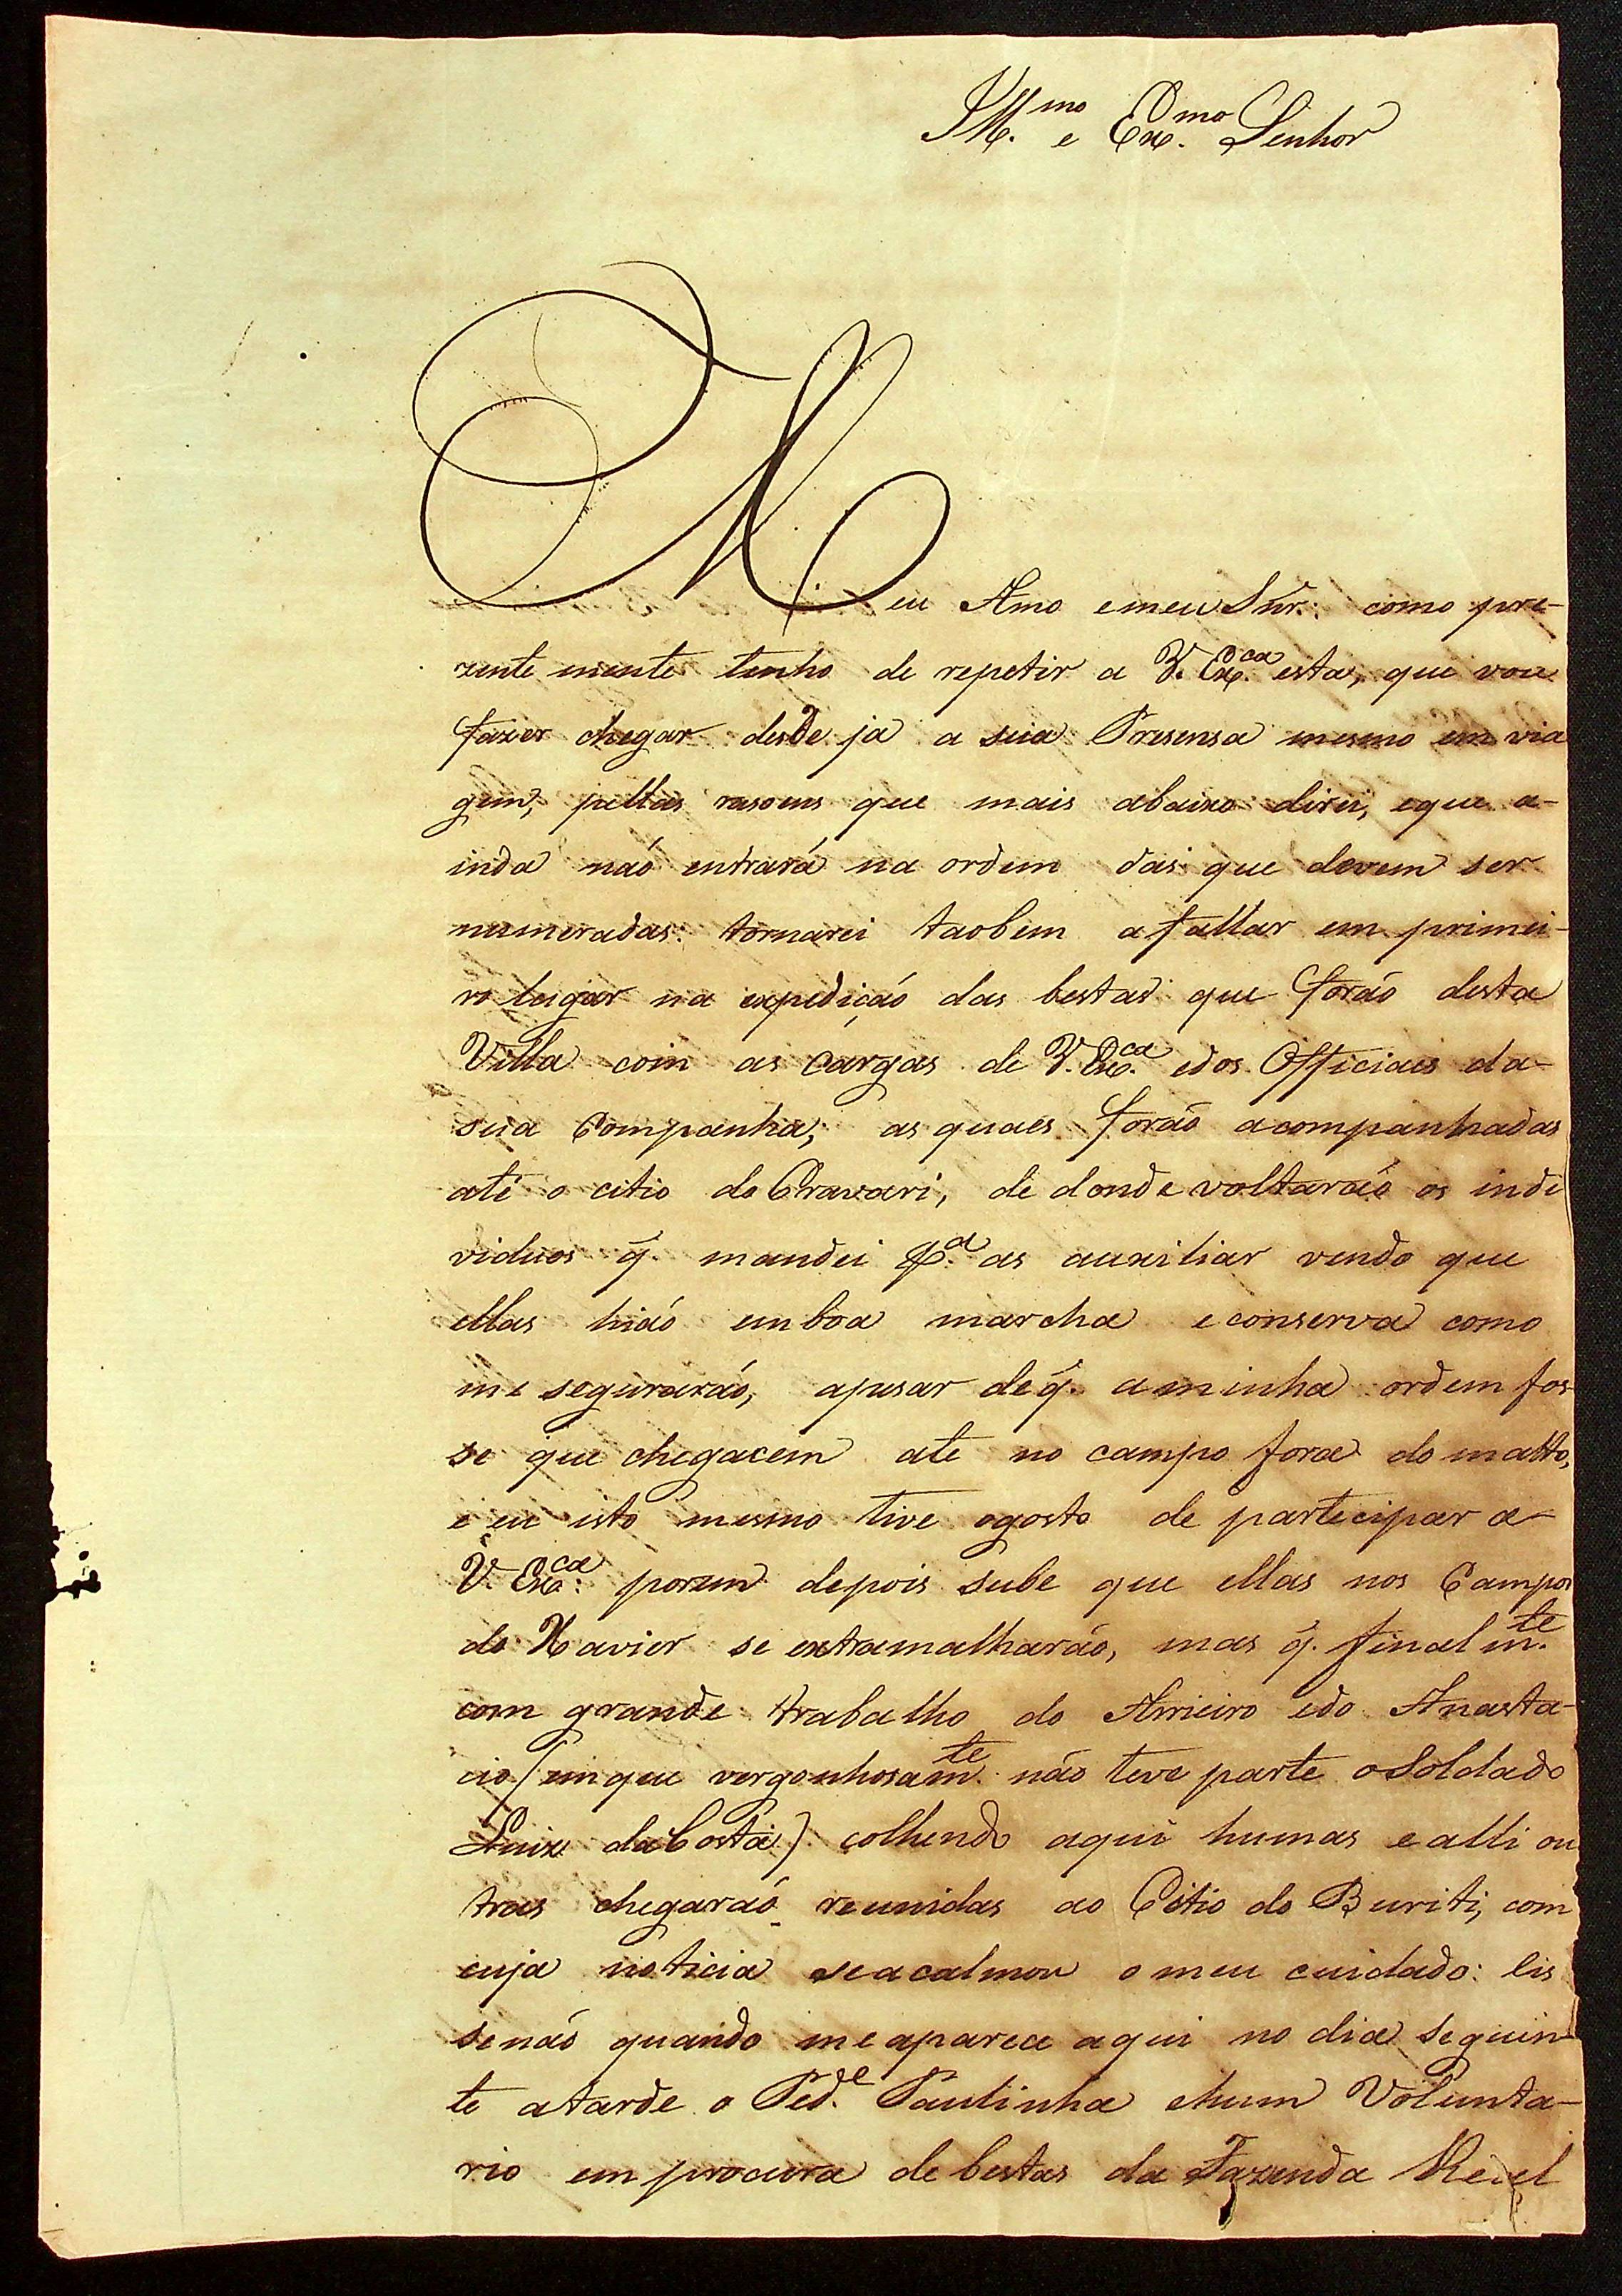 Ill.mo e Ex.mo Senhor
Meu Amo emeu Snr.: como pre-
zente mente tenho de repetir a V. Ex.ca esta, que vou
fazer chegar desde ja a sua Presensa mesmo em via
gem, pellas rasoens que mais abaixo direi, eque a-
inda naó entrará na ordem das que devem ser
numeradas: tornarei taobem afallar em primei-
ro lugar na expedição das bestas que foraó desta
Villa com as cargas de V. Ex.ca edos Officiaes da
sua Companha, as quaes foraó acompanhadas
até o citio do Cravari, de donde voltaraó os indi
viduos q̃. mandei p.a as auxiliar vendo que
ellas hiaó emboa marcha econserva como
me seguraraó, apesar deq̃. aminha ordem fos
se que chegacem ate no campo fora do matto,
e eu isto mesmo tive ogosto de partecipar a
V. Ex.ca: porem depois sube que ellas nos Campos
do Xavier se extramalharaó, mas q̃. finalm.te
com grande trabalho do Arrieiro edo Anasta-
cio (emque vergonhosam.te não teve parte oSoldado
Luiz daCosta) colhendo aqui humas ealli ou
tras chegaraó reunidas ao Citio do Buriti, com
cuja noticia seacalmou omeu cuidado: Eis
senaó quando meaparece aqui no dia seguin-
te atarde o Ped.e Paulinha ehum Volunta-
rio emprocura debestas da Fazenda Real